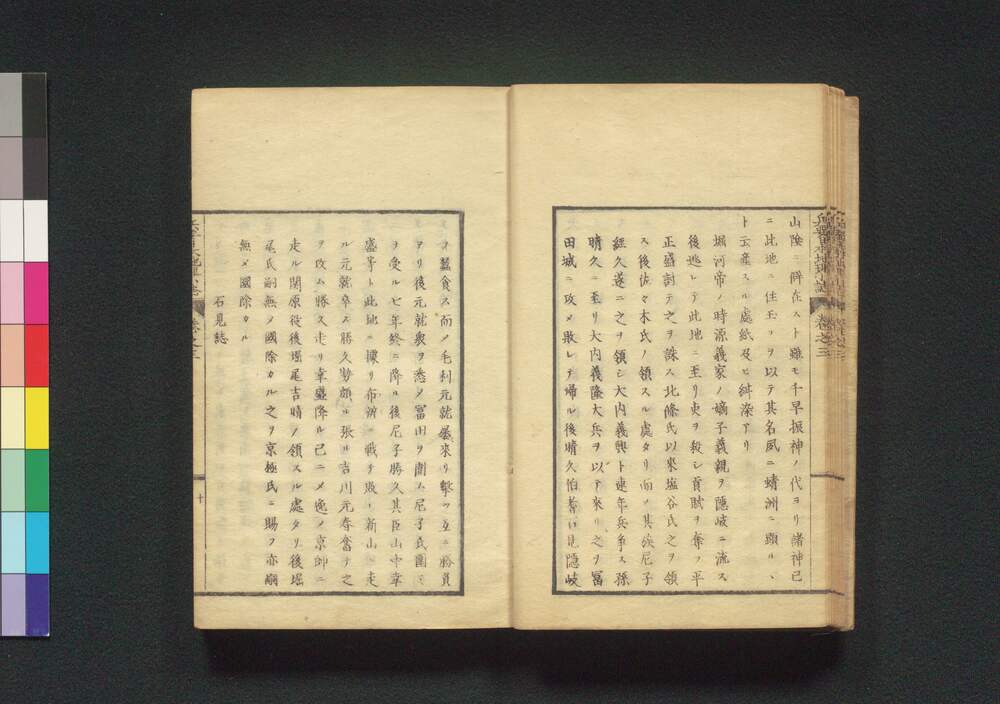 山陰ニ僻在スト雖モ千早振神ノ代ヨリ諸神已
ニ此地ニ住玉フヲ以テ其名夙ニ蜻洲ニ顕ル、
ト云産スル處紙及ヒ紺染アリ
堀河帝ノ時源義家ノ嫡子義親ヲ隠岐ニ流ス
後逃レテ此地ニ至リ吏ヲ殺シ貢賦ヲ奪フ平
正盛討テ之ヲ誅ス北條氏以来塩谷氏之ヲ領
ス後佐々木氏ノ領スル處タリ而ノ其族尼子
經久遂ニ之ヲ領シ大内義興ト連年兵争ス孫
晴久ニ至リ大内義隆大兵ヲ以テ来リ之ヲ冨
田城ニ攻メ敗レテ帰ル後晴久伯耆石見隠岐
ヲ蠶食ス而ノ毛利元就屡来リ撃ツ互ニ勝負
アリ後元就衆ヲ悉メ冨田ヲ圍ム尼子氏圍ミ
ヲ受ル七年終ニ降ル後尼子勝久其臣山中幸
盛等ト此地ニ據リ布辨ニ戦テ敗レ新山ニ走
ル元就卒ス勝久勢頗ル張ル吉川元春奮テ之
ヲ攻ム勝久走リ幸盛降ル已ニメ逸ノ京師ニ
走ル関原役後堀尾吉晴ノ領スル處タリ後堀
尾氏嗣無メ國除カル之ヲ京極氏ニ賜フ亦嗣
無メ國除カル
石見誌
卷之三
十